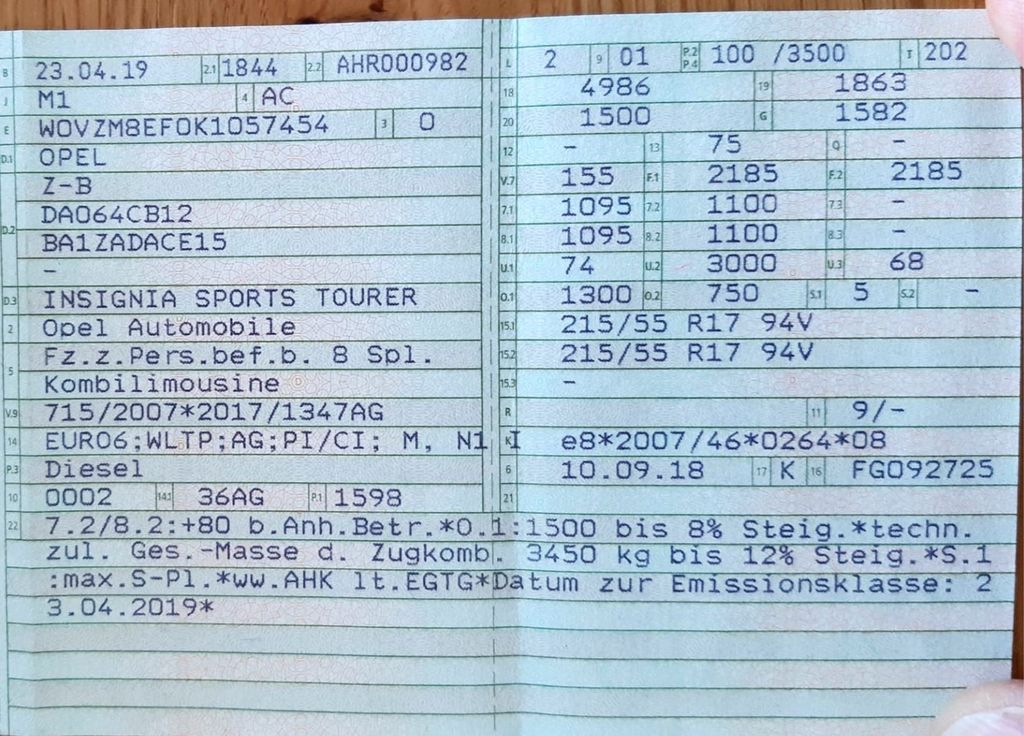 B 23.04.19 2.1 1844 2.2 AHR000982
J M1 4 AC
E W0VZM8EF0K1057454 3 0
D.1 OPEL
D.2 Z-B
DA064CB12
BA1ZADACE15
-
D.3 INSIGNIA SPORTS TOURER
2 Opel Automobile
5 Fz.z.Pers.bef.b. 8 Spl.
Kombilimousine
V.9 715/2007*2017/1347AG
14 EURO6;WLTP;AG;PI/CI; M, N1 I
P.3 Diesel
10 0002 14.1 36AG P.1 1598
L 2 9 01 P.2 P.4 100 /3500 T 202
18 4986 19 1863
20 1500 G 1582
12 - 13 75 Q -
V.7 155 F.1 2185 F.2 2185
7.1 1095 7.2 1100 7.3 -
8.1 1095 8.2 1100 8.3 -
U.1 74 U.2 3000 U.3 68
O.1 1300 O.2 750 S.1 5 S.2 -
15.1 215/55 R17 94V
15.2 215/55 R17 94V
15.3 -
R 11 9/-
K e8*2007/46*0264*08
6 10.09.18 17 K 16 FG092725
21
22 7.2/8.2:+80 b.Anh.Betr.*O.1:1500 bis 8% Steig.*techn.
zul. Ges.-Masse d. Zugkomb. 3450 kg bis 12% Steig.*S.1
:max.S-Pl.*ww.AHK lt.EGTG*Datum zur Emissionsklasse: 2
3.04.2019*